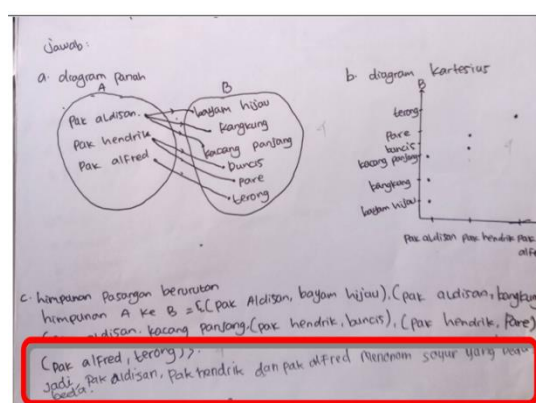 Jawab:
a. diagram panah
A
B
Pak aldisan.
Pak hendrik
Pak alfred
bayam hijau
kangkung
kacang panjang
buncis
pare
terong
b. diagram kartesius
B
terong
Pare
buncis
kacang panjang
kangkung
bayam hijau
Pak aldisan Pak hendrik Pak
alf
c. himpunan Pasangan berurutan
himpunan A ke B = {(Pak Aldisan, bayam hijau), (Pak aldisan, kangkun
aldisan. kacang panjang. (Pak hendrik, buncis), (Pak hendrik, Pare)
(Pak alfred, terong)}.
Jadi, Pak aldisan, Pak hendrik dan pak alfred Menanam sayur yang
beda.